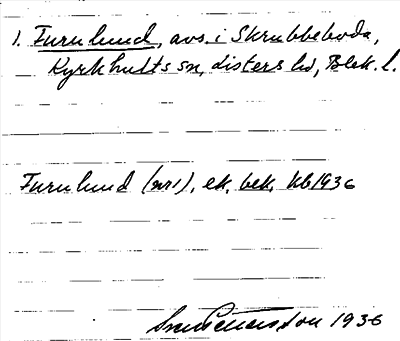 1. Furulund, avs. i Skrubbeboda,
Kyrkhults sn, Listers hd, Blek. l.
Furulund (nr 1), ek. bek. kb 1936
1936